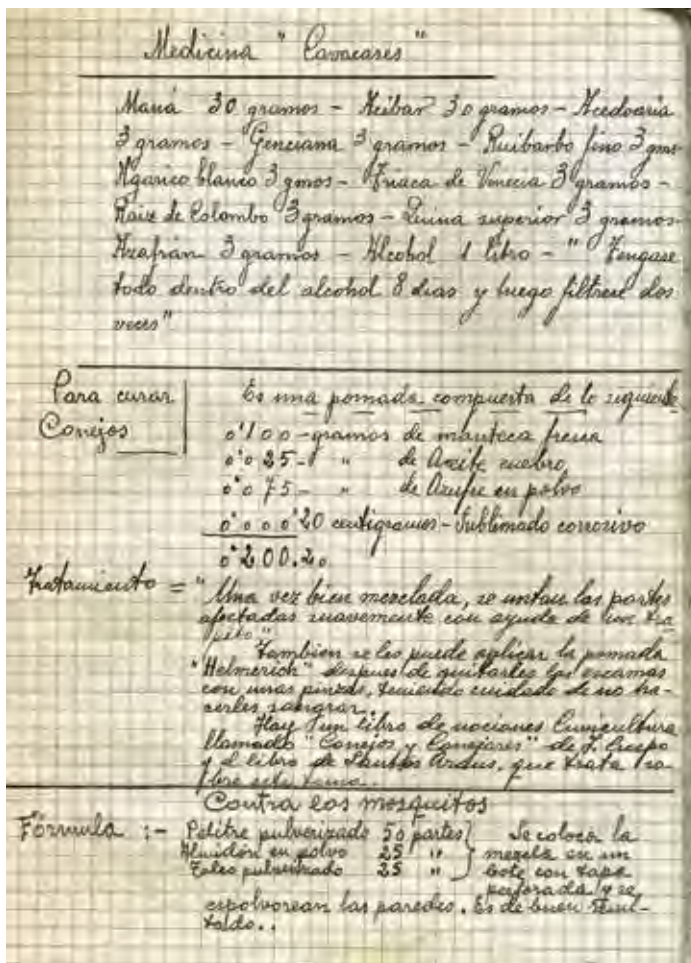 Medicina " Cavacases "
Maná 30 gramos - Acíbar 30 gramos - Acedoaria
3 gramos - Genciana 3 gramos - Ruibarbo fino 3 gmos
Agarico blanco 3 gmos - Triaca de Venecia 3 gramos -
Raiz de Colombo 3 gramos - Quina superior 3 gramos -
Azafrán 3 gramos - Alcohol 1 litro - " Tengase
todo dentro del alcohol 8 dias y luego filtrese dos
veces"
Para curar
Conejos
Es una pomada compuesta de lo siguiente
0'100 - gramos de manteca fresca
0'025 - " de Aceite enebro
0'075 - " de Azufre en polvo
0'000'20 centigramos - Sublimado corrosivo
0'200.20
Tratamiento = "Una vez bien mezclada, se untan las partes
afectadas suavemente con ayuda de un tra
pito"
Tambien se les puede aplicar la pomada
"Helmerich" despues de quitarles las escamas
con unas pinzas, teniendo cuidado de no ha-
cerles sangrar.
Hay un libro de nociones Cunicultura
llamado "Conejos y Conejares" de J. Crespo
y el libro de Santos Ardus, que trata so
bre este tema.
Contra los mosquitos
Fórmula :- Pelitre pulverizado 50 partes } Se coloca la
Almidón en polvo 25 " mezcla en un
Talco pulverizado 25 " bote con tapa
perforada y se
espolvorean las paredes. Es de buen resul-
tado..